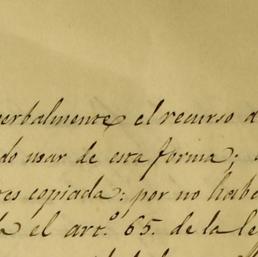 verbalmente el recurso d
do usar de esta forma;
es copiada; por no habe
a el art.º 65. de la le